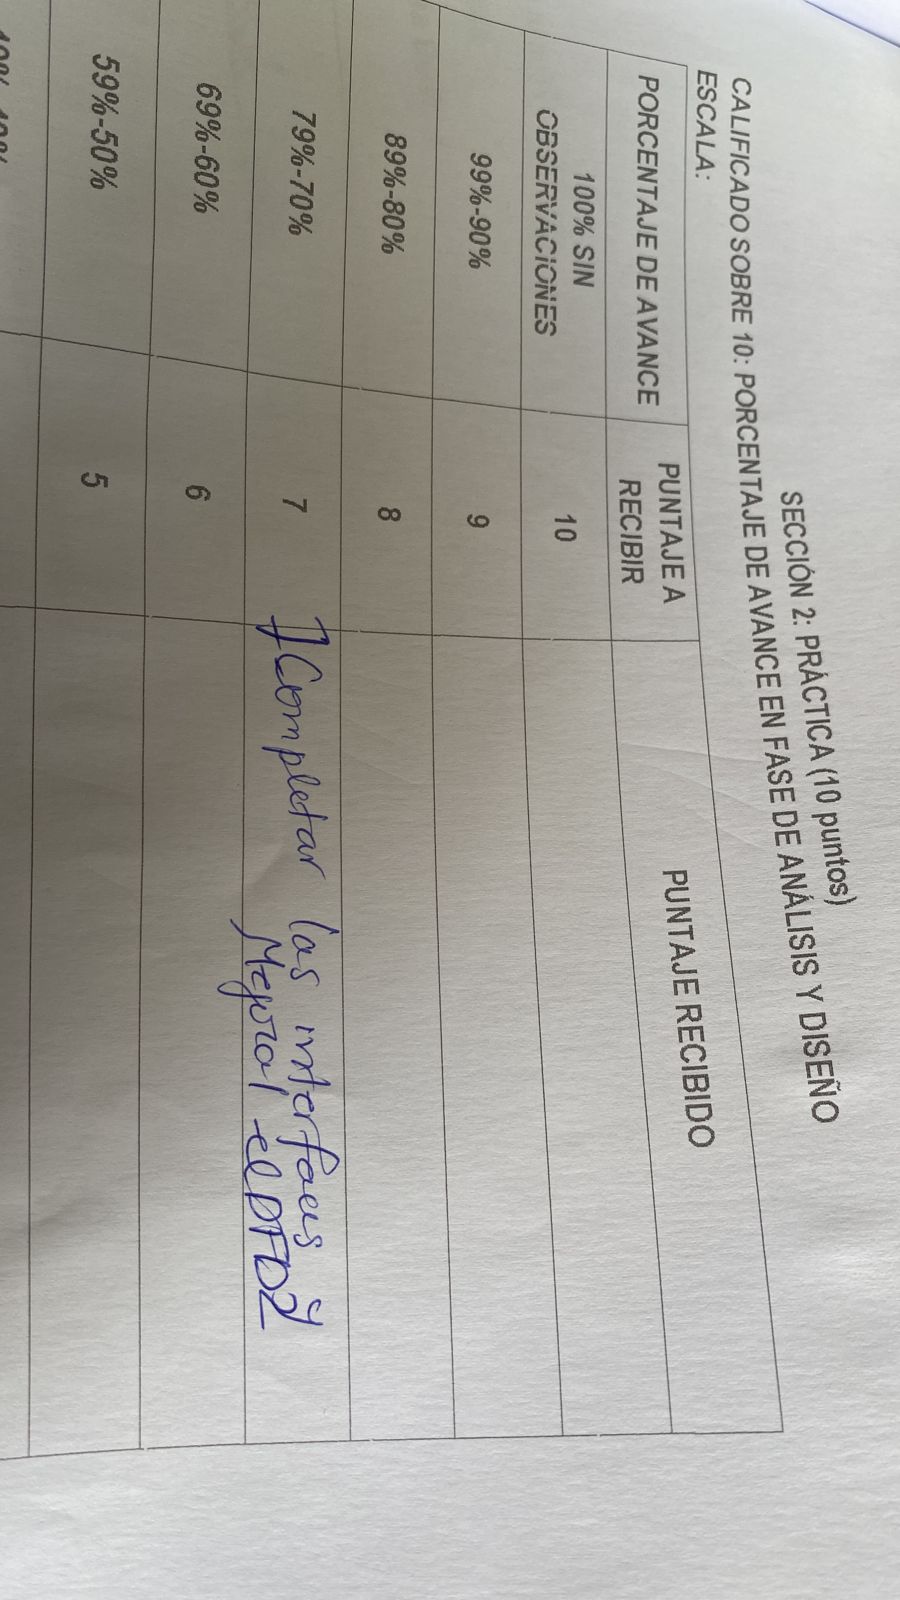 SECCIÓN 2: PRÁCTICA (10 puntos)
CALIFICADO SOBRE 10: PORCENTAJE DE AVANCE EN FASE DE ANÁLISIS Y DISEÑO
ESCALA:
PORCENTAJE DE AVANCE PUNTAJE A RECIBIR PUNTAJE RECIBIDO
100% SIN OBSERVACIONES 10
99%-90% 9
89%-80% 8
79%-70% 7 Completar las interfaces y
Mejorar el DFD2
69%-60% 6
59%-50% 5